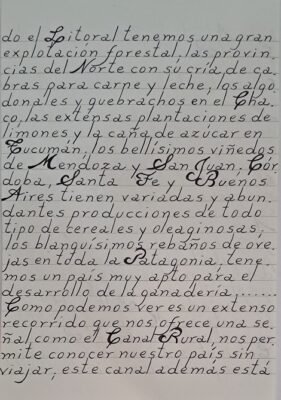 do el Litoral tenemos una gran
explotación forestal, las provin,
cias del Norte con su cría de ca,
bras para carne y leche, los algo
donales y quebrachos en el Cha,
co, las extensas plantaciones de
limones y la caña de azúcar en
Tucumán, los bellísimos viñedos
de Mendoza y San Juan, Cór
doba, Santa Fe y Buenos
Aires tienen variadas y abun,
dantes producciones de todo
tipo de cereales y oleaginosas,
los blanquísimos rebaños de ove,
jas en toda la Patagonia, tene,
mos un país muy apto para el
desarrollo de la ganadería,......
Como podemos ver es un extenso
recorrido que nos ofrece una se,
ñal como el Canal Rural, nos per,
mite conocer nuestro país sin
viajar, este canal además está